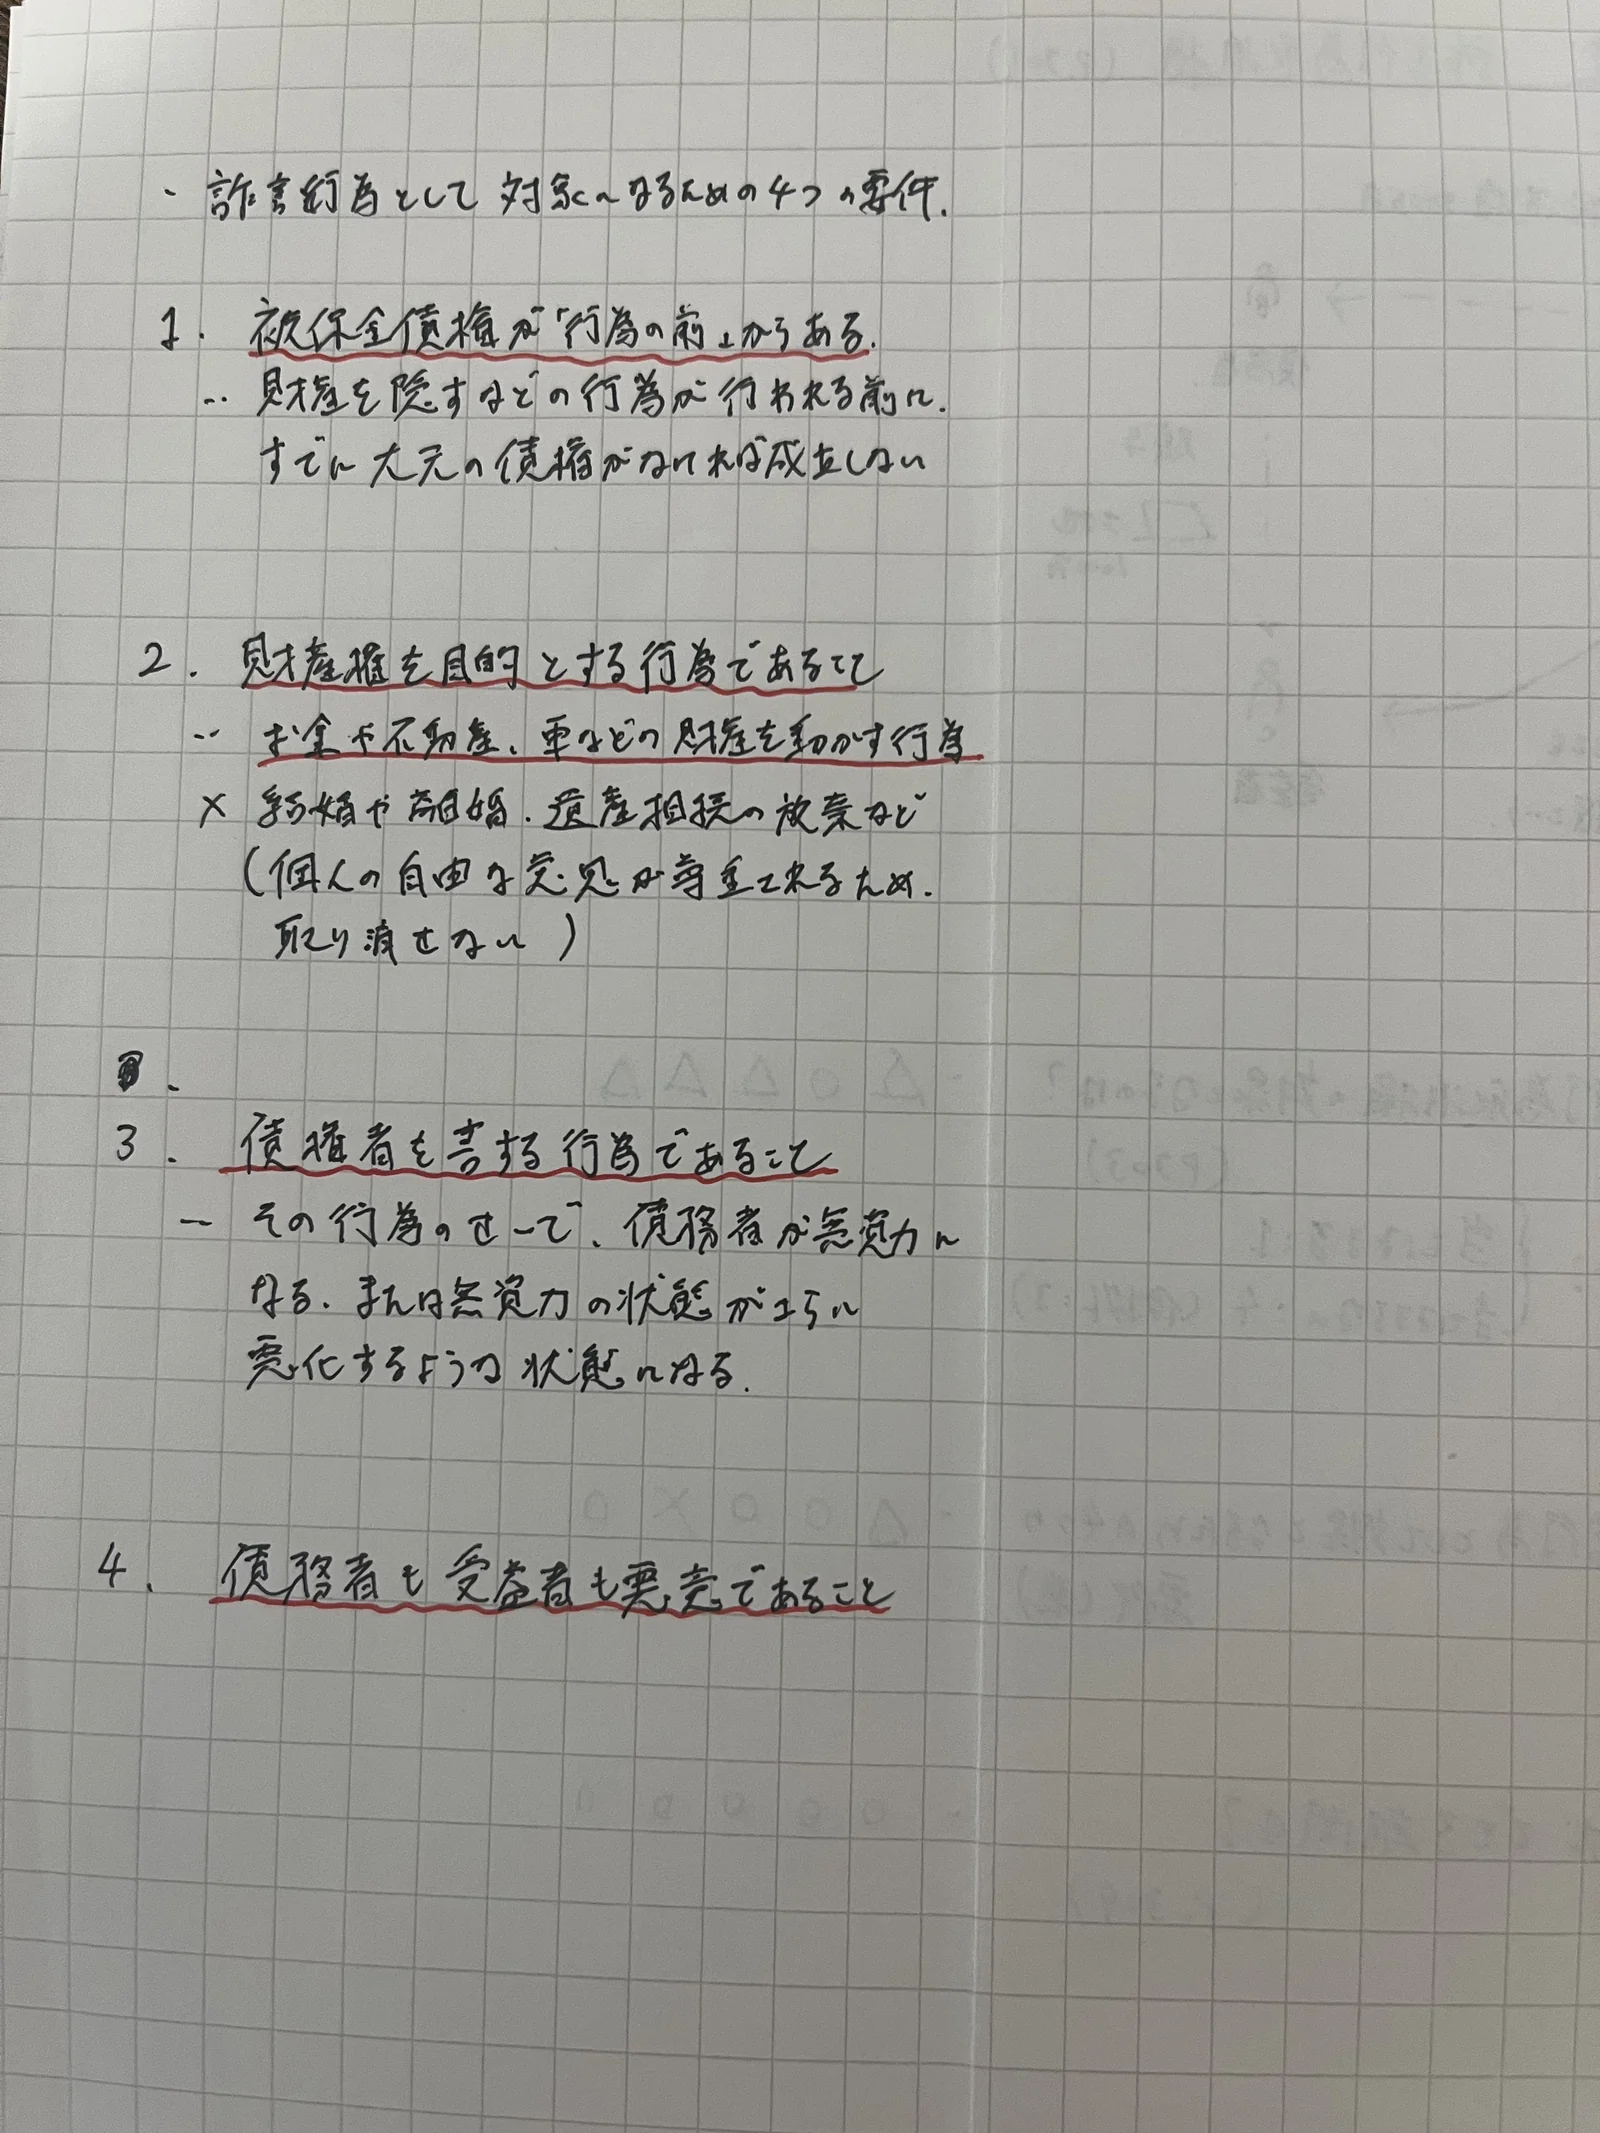 - 詐害行為として対象となるための4つの要件.
1. 被保全債権が「行為の前」からある.
‥ 財産を隠すなどの行為が行われる前に.
すでに大元の債権がなければ成立しない
2. 財産権を目的とする行為であること
‥ お金や不動産、車などの財産を動かす行為
× 結婚や離婚.遺産相続の放棄など
(個人の自由な意思が尊重されるため.
取り消せない)
3. 債権者を害する行為であること
- その行為のせいで、債務者が無資力に
なる.または無資力の状態がさらに
悪化するような状態になる.
4. 債務者も受益者も悪意であること